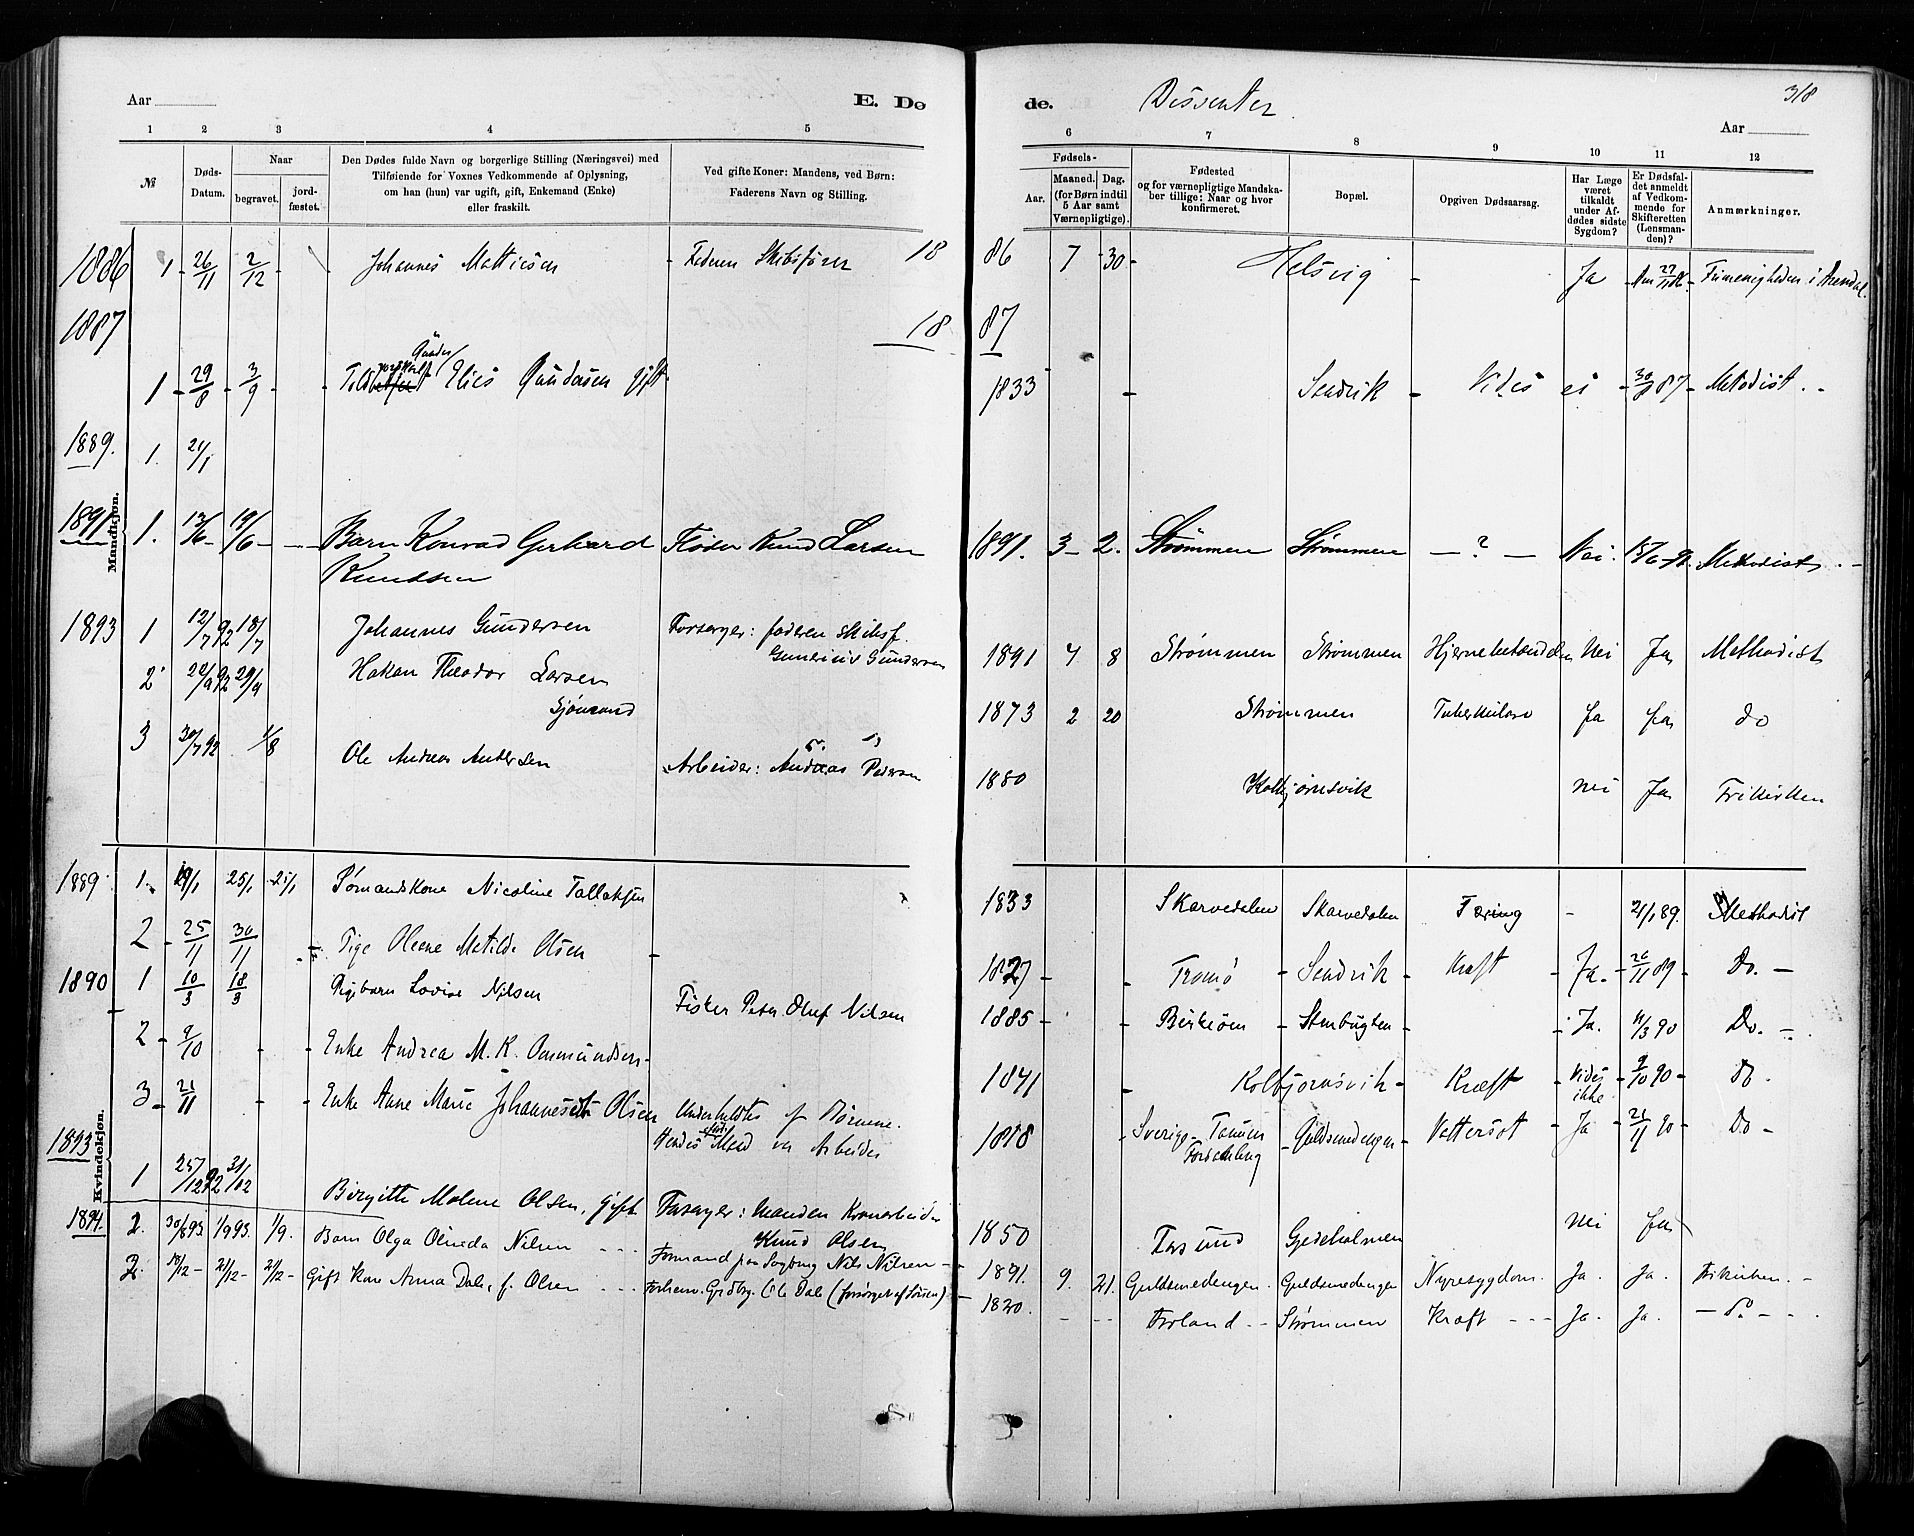 Aar
E. Dø
de.
Dissenter
318
Aar
1 2 3 4 5 6 7 8 9 10 11 12
№
Døds-Datum.
Naar
begravet.
jord-fæstet.
Den Dødes fulde Navn og borgerlige Stilling (Næringsvei) med
Tilføiende for Voxnes Vedkommende af Oplysning,
om han (hun) var ugift, gift, Enkemand (Enke)
eller fraskilt.
Ved gifte Koner: Mandens, ved Børn:
Faderens Navn og Stilling.
Fødsels-
Aar.
Maaned. Dag.
(for Børn indtil
5 Aar samt
Værnepligtige).
Fødested
og for værnepligtige Mandska-
ber tillige: Naar og hvor
konfirmeret.
Bopæl.
Opgiven Dødsaarsag.
Har Læge
været
tilkaldt
under Af-
dødes sidste
Sygdom?
Er Dødsfal-
det anmeldt
af Vedkom-
mende for
Skifteretten
(Lensman-
den)?
Anmærkninger.
Mandkjøn.
1886 1 26/11 2/12 Johannes Mathiesen Faderen Skibsfører 18 86 7 30 Helsvig Ja i Arendal.
1887 18 87
1 29/8 3/9 Elies gift 1833 Sandvik Vides ei 30/8 87 Metodist.
1889. 1. 21/1
1891 1. 13/6 19/6 Barn Konrad Gerhard Fader Knud Larsen 1891. 3 2. Strømmen Strømmen ? Nei. 15/6 91. Methodist.
Knudsen
1893 1 12/7 92 18/7 Johannes Gundersen Forsørger: faderen skibsf. Gunerius Gundersen 1891 4 8 Strømmen Strømmen Hjernebetændelse Nei Ja Methodist
2 24/9 92 29/9 Hakon Theodor Larsen 1873 2 20 Strømmen Tuberkulose Ja Ja do
3 30/7 92 1/8 Ole Andreas Andersen Arbeider: Andreas Pedersen 1880 Kolbjørnsvik nei Ja Frikirken
Kvindekjøn.
1889 1. 19/1 25/1 25/1 Nicoline Tallaksen 1833 Skarvedalen Skarvedalen Tæring 21/1 89. Methodist
2 25/11 30/11 Pige Olene Matilde Olsen 1827 Tromø Sandvik Kræft Ja. 26/11 89 Do.
1890 1 10/3 18/3 Pigebarn Lovise Nilsen Fisker Peter Oluf Nilsen 1885 Ja. 11/3 90 Do.
2 9/10 Enke Andrea M. K. Osmundsen 1841 Kolbjørnsvik Kræft Vides ikke 9/10 90 do.
3 21/11 Enke Anne Marie Johannesen Olsen Underholdtes af Børnene. Hendes Mand var Arbeider 1818 Sverige Tanum Guldsmedengen Vattersot Ja 21/11 90 Do
1893 1 25/12 92 31/12 Birgitte Malene Olsen, gift Forsørger: Manden Knud Olsen 1850 Farsund Gjedeholmen nei Ja
1894. 2. 30/8 93. 1/9 93. 1/9. Barn Olga Olineda Nilsen Formand paa Sagbrug Nils Nilsen 1891. 9. 21. Guldsmedengen. Guldsmedengen Nyresygdom. Ja. Ja. Frikirken.
2. 18/12 21/12 21/12 Gift Kone Anna Dale, f. Olsen Forhenv. Grdbr. Ole Dale 1820. Froland Strømmen Kræft Ja. Ja. do.